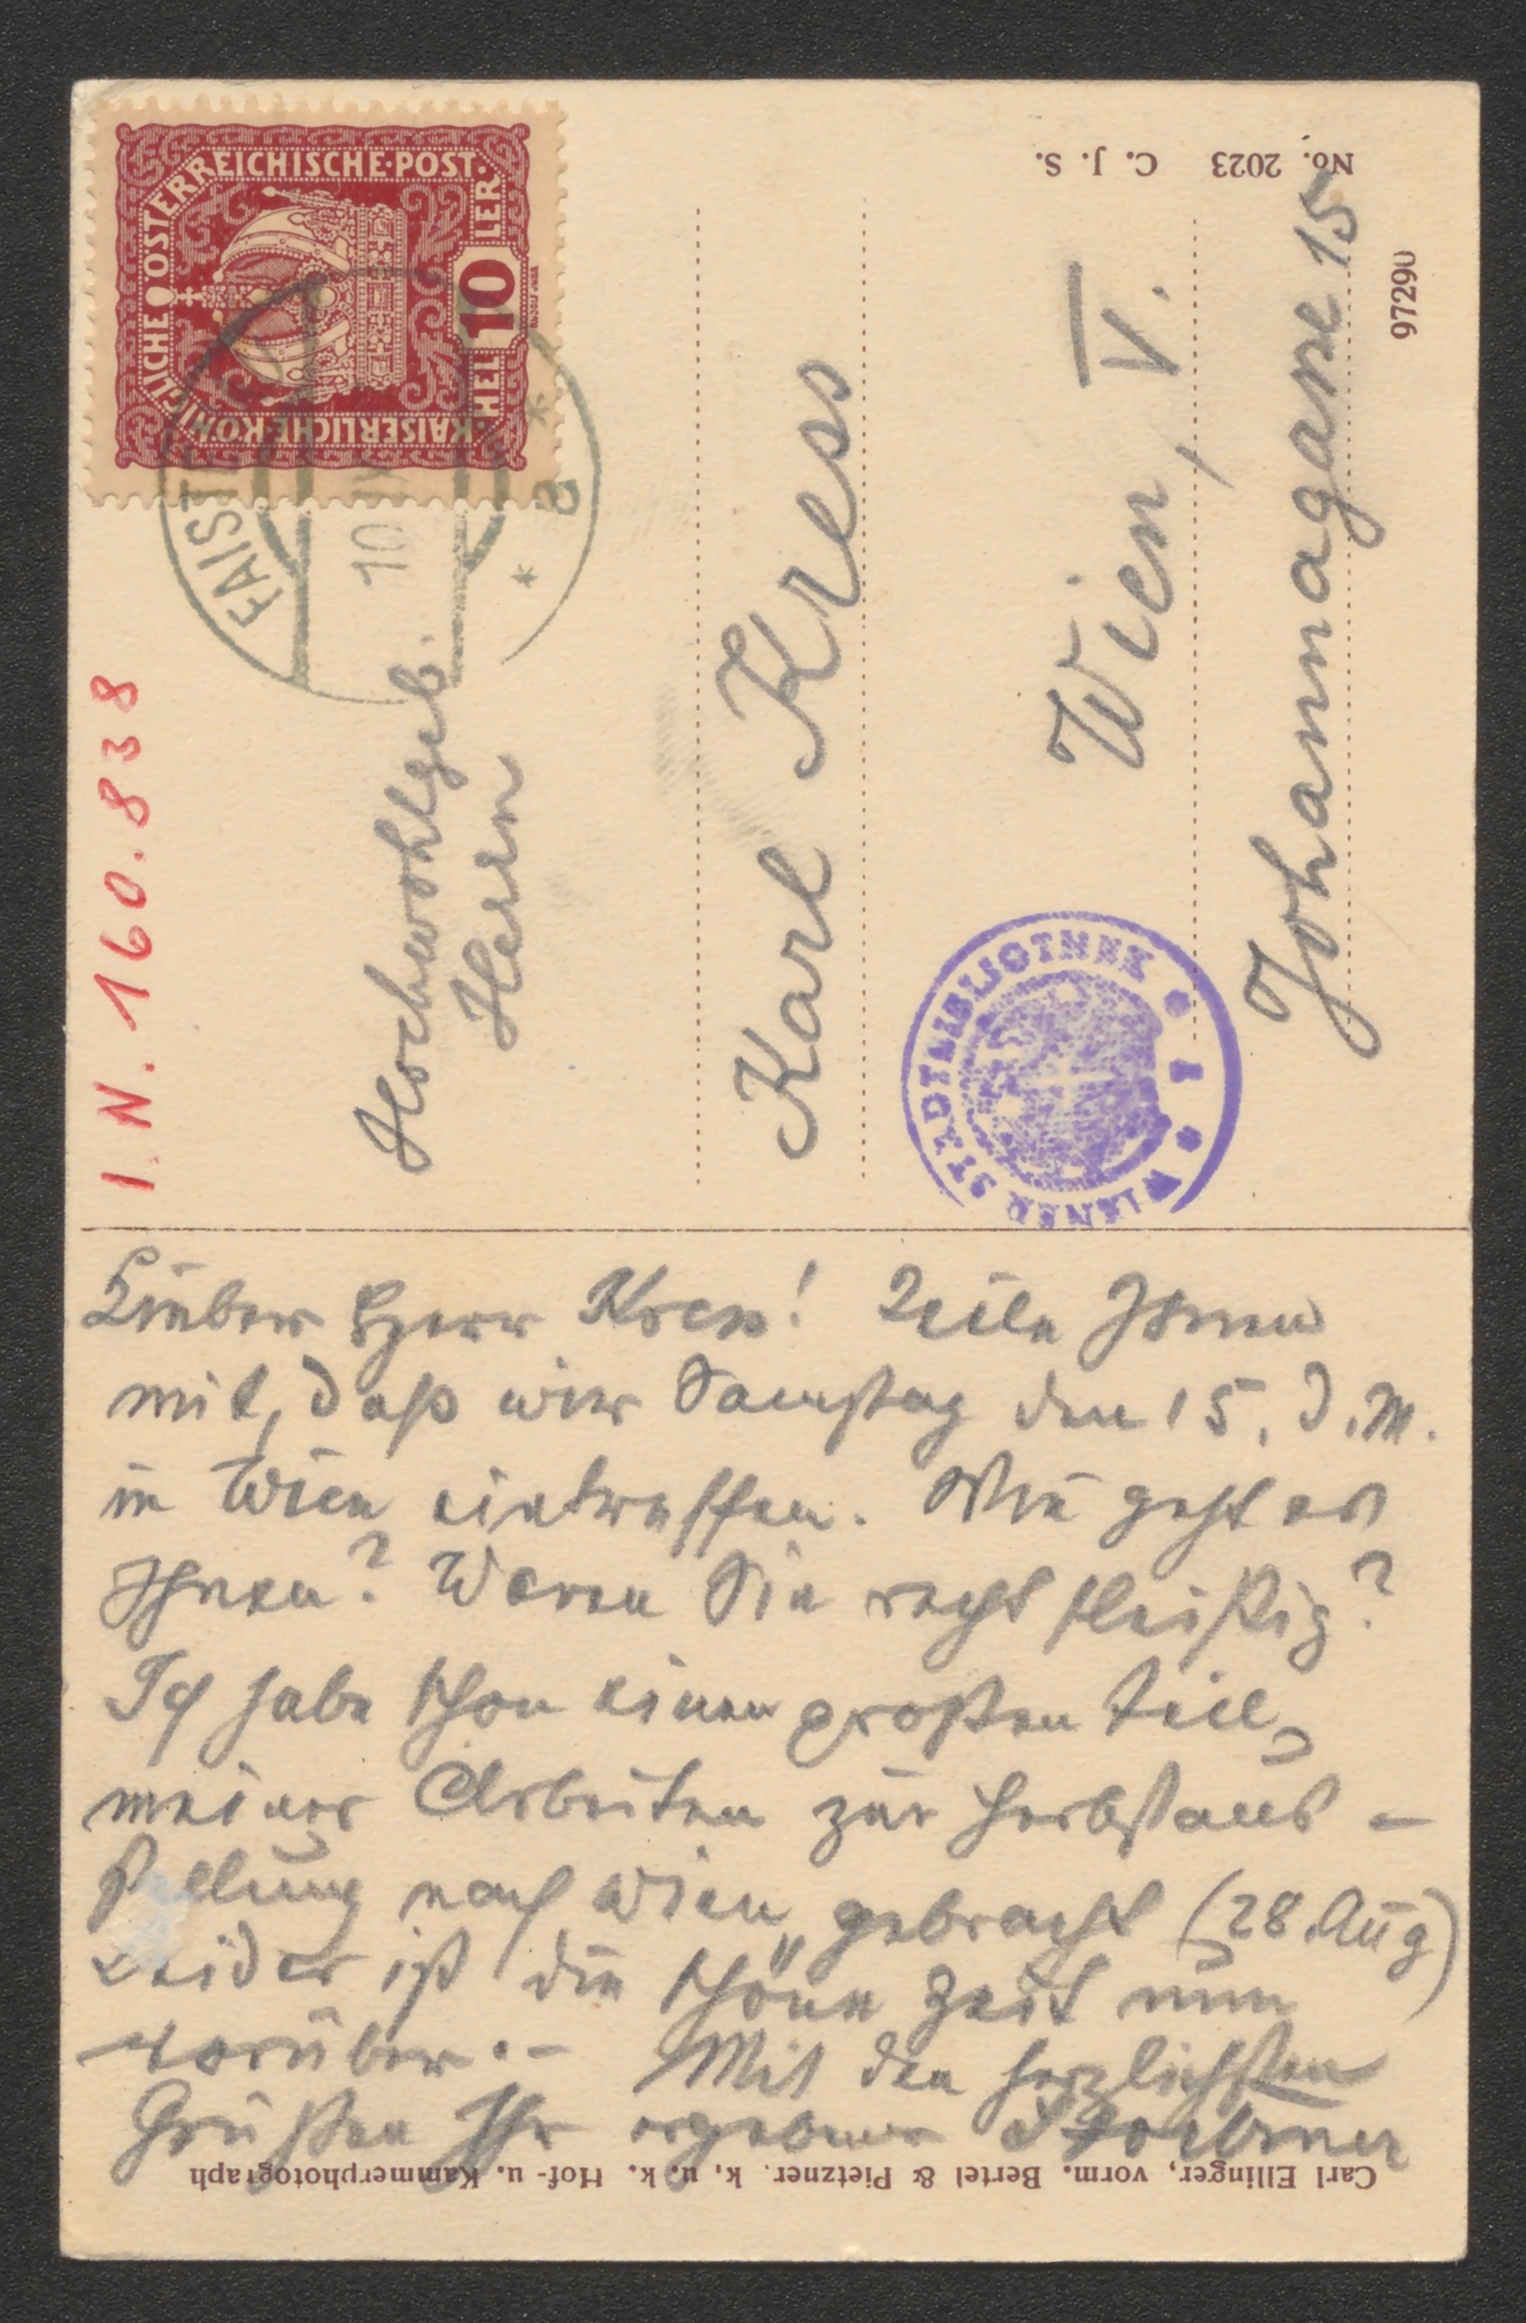 KAISERLICHE KÖNIGLICHE ÖSTERREICHISCHE·POST·
10 HELLER
FAISTE
10 IX
a
I. N. 160.838
Hochwohlgeb.
Herrn
Karl Kress
Wien, V.
Johannagasse 15
WIENER STADTBIBLIOTHEK
No. 2023 C. J. S.
97290
Lieber Herr Kress! Teile Ihnen
mit, daß wir Samstag den 15. d. M.
in Wien eintreffen. Wie geht es
Ihnen? Waren Sie recht fleißig?
Ich habe schon einen großen Teil
meiner Arbeiten zur Herbstaus-
stellung nach Wien gebracht (28. Aug)
Leider ist die schöne Zeit nun
vorüber.- Mit den herzlichsten
Grüßen Ihr ergebener
Carl Ellinger, vorm. Bertel & Pietzner, k. u. k. Hof- u. Kammerphotograph